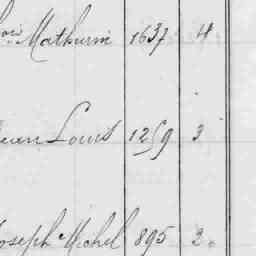 Mathurin 1637 4
Jean Louis 1259 3
Joseph Michel 895 2.